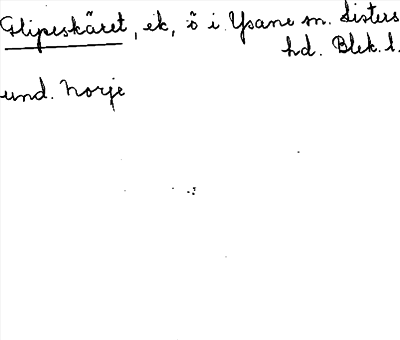 Glipeskäret, ek, ö i Ysane sn. Listers
hd. Blek. l.
und. Norje